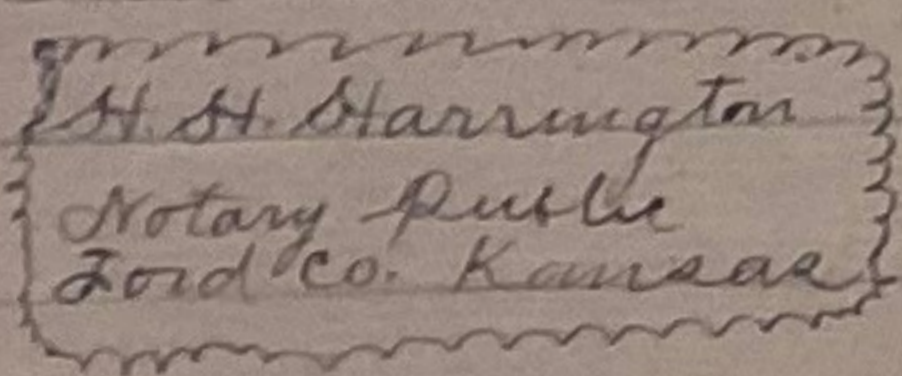 H. H. Harrington
Notary Public
Ford Co. Kansas